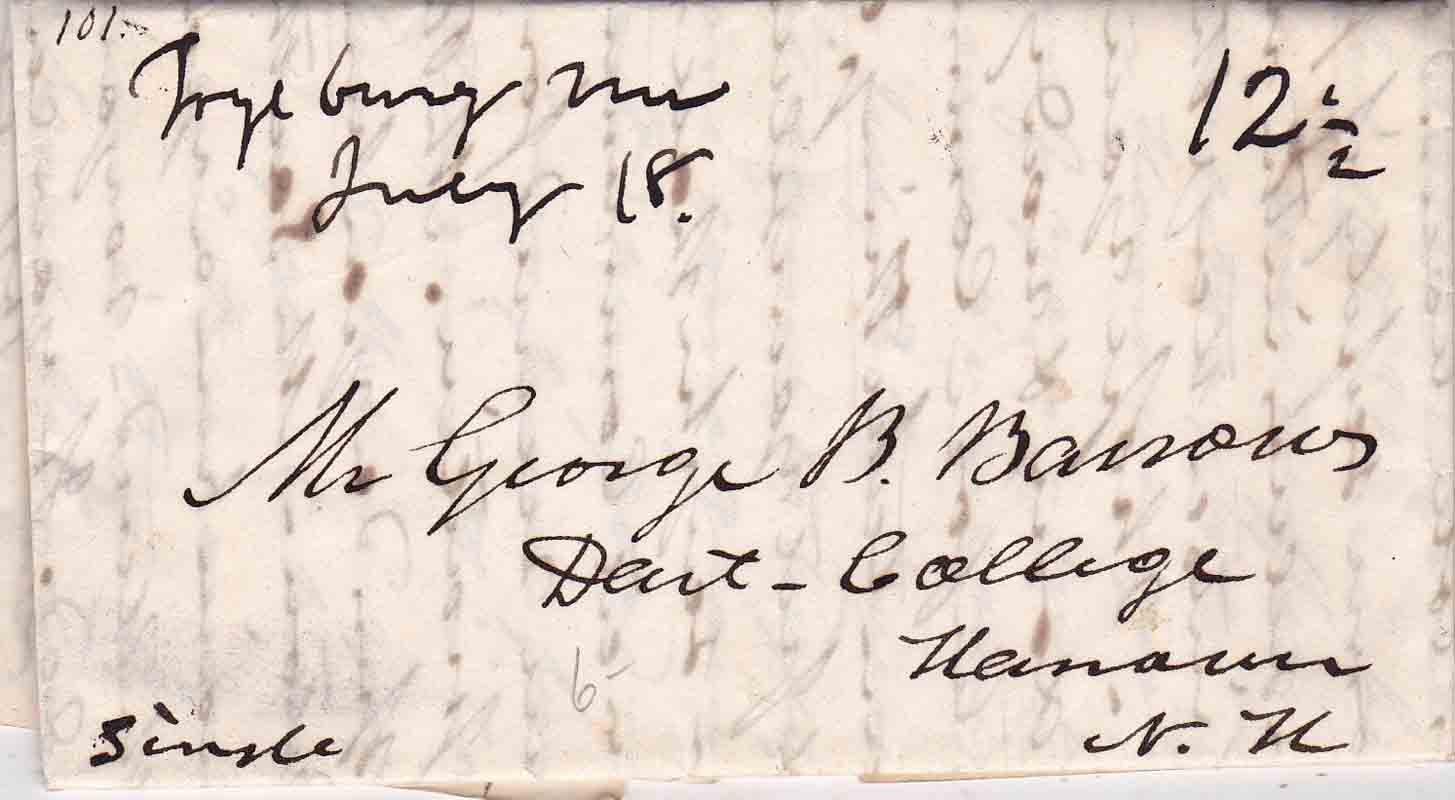 101.
Fryeburg Me
July 18.
12 1/2
Mr George B. Barrows
Dart - College
Hanover
N. H
6-
Single